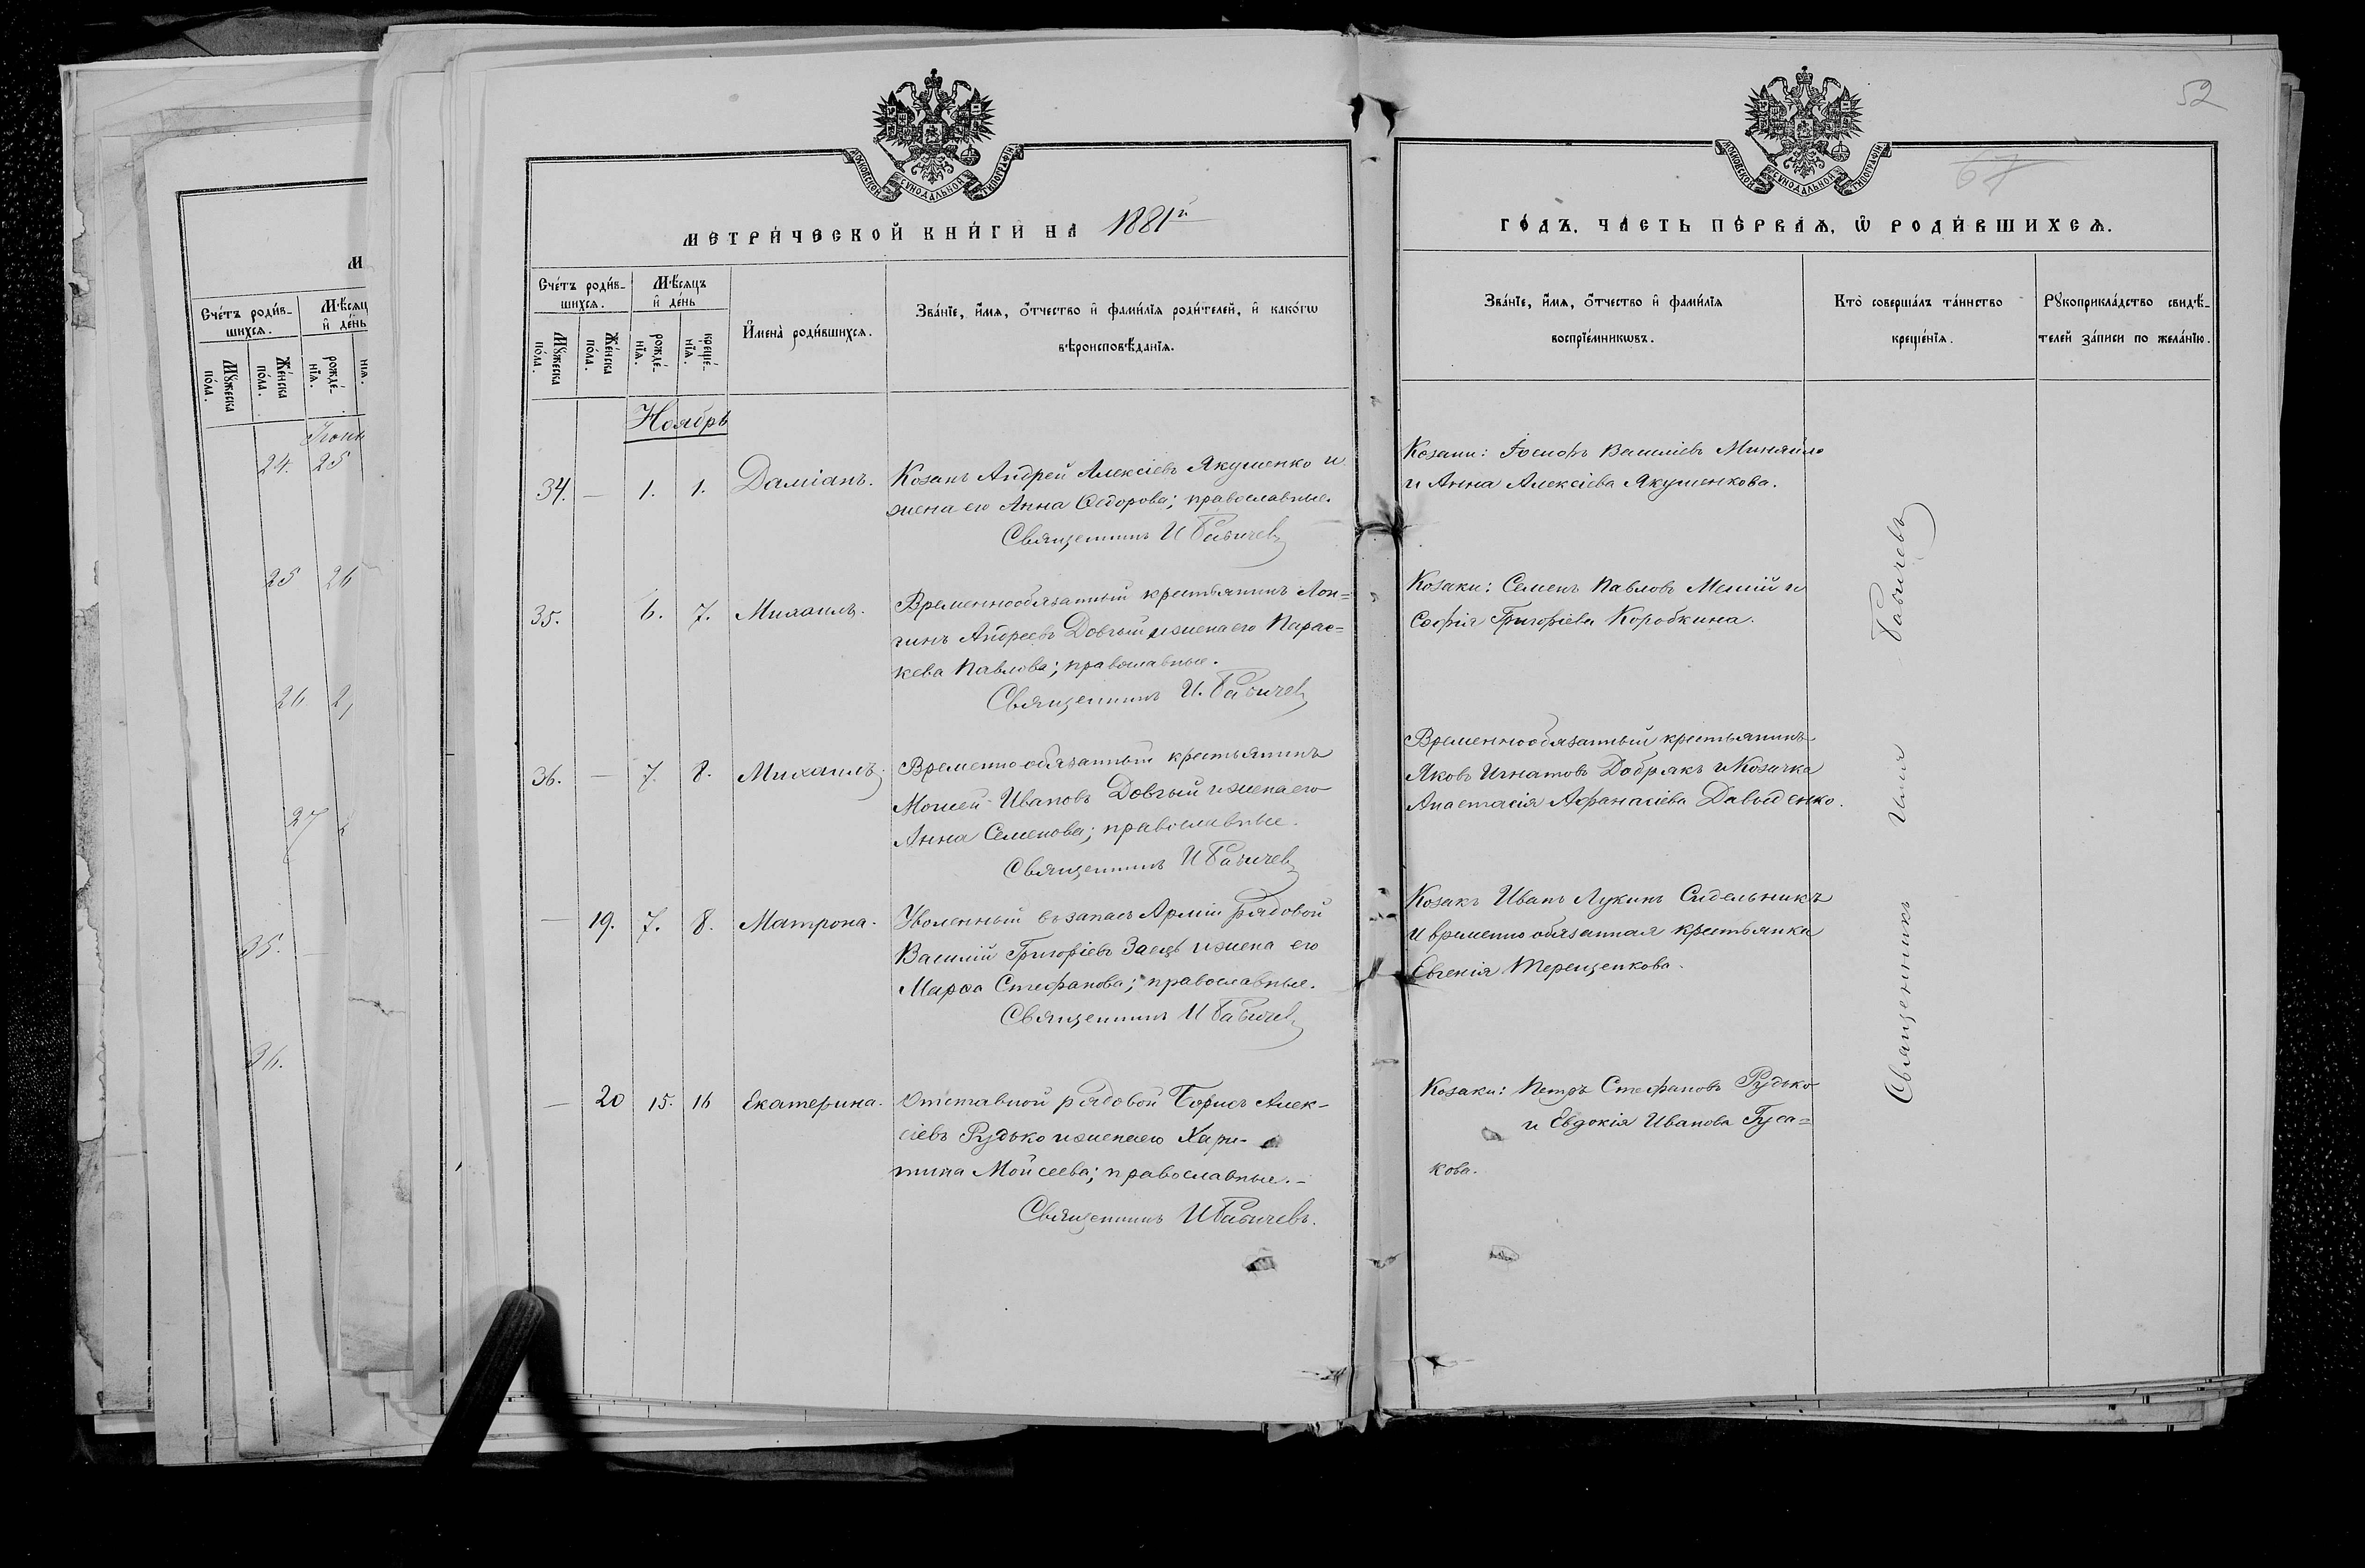 52
67
МОСКОВСКОЙ СѴНОДАЛЬНОЙ ТИПОГРАФІИ
МОСКОВСКОЙ СѴНОДАЛЬНОЙ ТИПОГРАФІИ
МЕТРИ́ЧЕСКОЙ КНИ́ГИ НА 1881й
ГО́ДЪ, ЧА́СТЬ ПЕ́РВАѦ, Ѿ РОДИ́ВШИХСѦ.
Сче́тъ роди́в-
шихсѧ.
Мꙋ́жеска по́ла.
Же́нска по́ла.
Мѣ́сѧцъ
и де́нь
рожде́-
нїѧ.
креще́-
нїѧ.
Имена̀ роди́вшихсѧ.
Зва́нїе, и́мѧ, о́тчество и фами́лїѧ роди́телей, и како́гѡ
вѣроисповѣ́данїѧ.
Зва́нїе, и́мѧ, о́тчество и фами́лїѧ
воспрїе́мникѡвъ.
Кто̀ соверша́лъ та́инство
креще́нїѧ.
Рꙋкоприкла́дство свидѣ́-
телей за́писи по жела́нїю.
Ноябрь
34. — 1. 1. Даміанъ.
Козакъ Андрей Алексіевъ Якушенко и
жена его Анна Ѳедорова; православные.
Священникъ И Бабичевъ
Козаки: Іосифъ Василіевъ Миняйло
и Анна Алексіева Якушенкова.
35. 6. 7. Михаилъ.
Временнообязанный крестьянинъ Лон=
гинъ Андреевъ Довгый и жена его Парас=
кева Павлова; православные.
Священникъ И. Бабичевъ
Козаки: Семенъ Павловъ
Софія Григоріева Коробкина.
36. — 7. 8. Михаилъ.
Временно обязанный крестьянинъ
Моисей Ивановъ Довгый и жена его
Анна Семенова; православные.
Священникъ И Бабичевъ
Временнообязанный крестьянинъ
Яковъ Игнатовъ Добрякъ и Козачка
Анастасія Аѳанасіева Давыденко.
— 19. 7. 8. Матрона.
Уволенный въ запасъ Арміи рядовой
Василій Григоріевъ Заецъ и жена его
Марѳа Стефанова; православные.
Священникъ И Бабичевъ
Козакъ Иванъ Лукинъ Сидельникъ
и временно обязанная крестьянка
Евгенія Терещенкова.
— 20 15. 16 Екатерина.
Отставной рядовой Борисъ Алек-
сіевъ Рудько и жена его Хари-
тина Мойсеева; православные.-
Священникъ И Бабичевъ.
Козаки: Петръ Стефановъ Рудько
и Евдокія Иванова Гуса=
кова.
Священникъ Бабичевъ
Сче́тъ роди́в-
шихсѧ.
Мꙋ́жеска по́ла.
Же́нска по́ла.
Мѣ́сѧц
и де́нь
рожде́-
нїѧ.
24. 25
25 26
26
27
35. —
36.